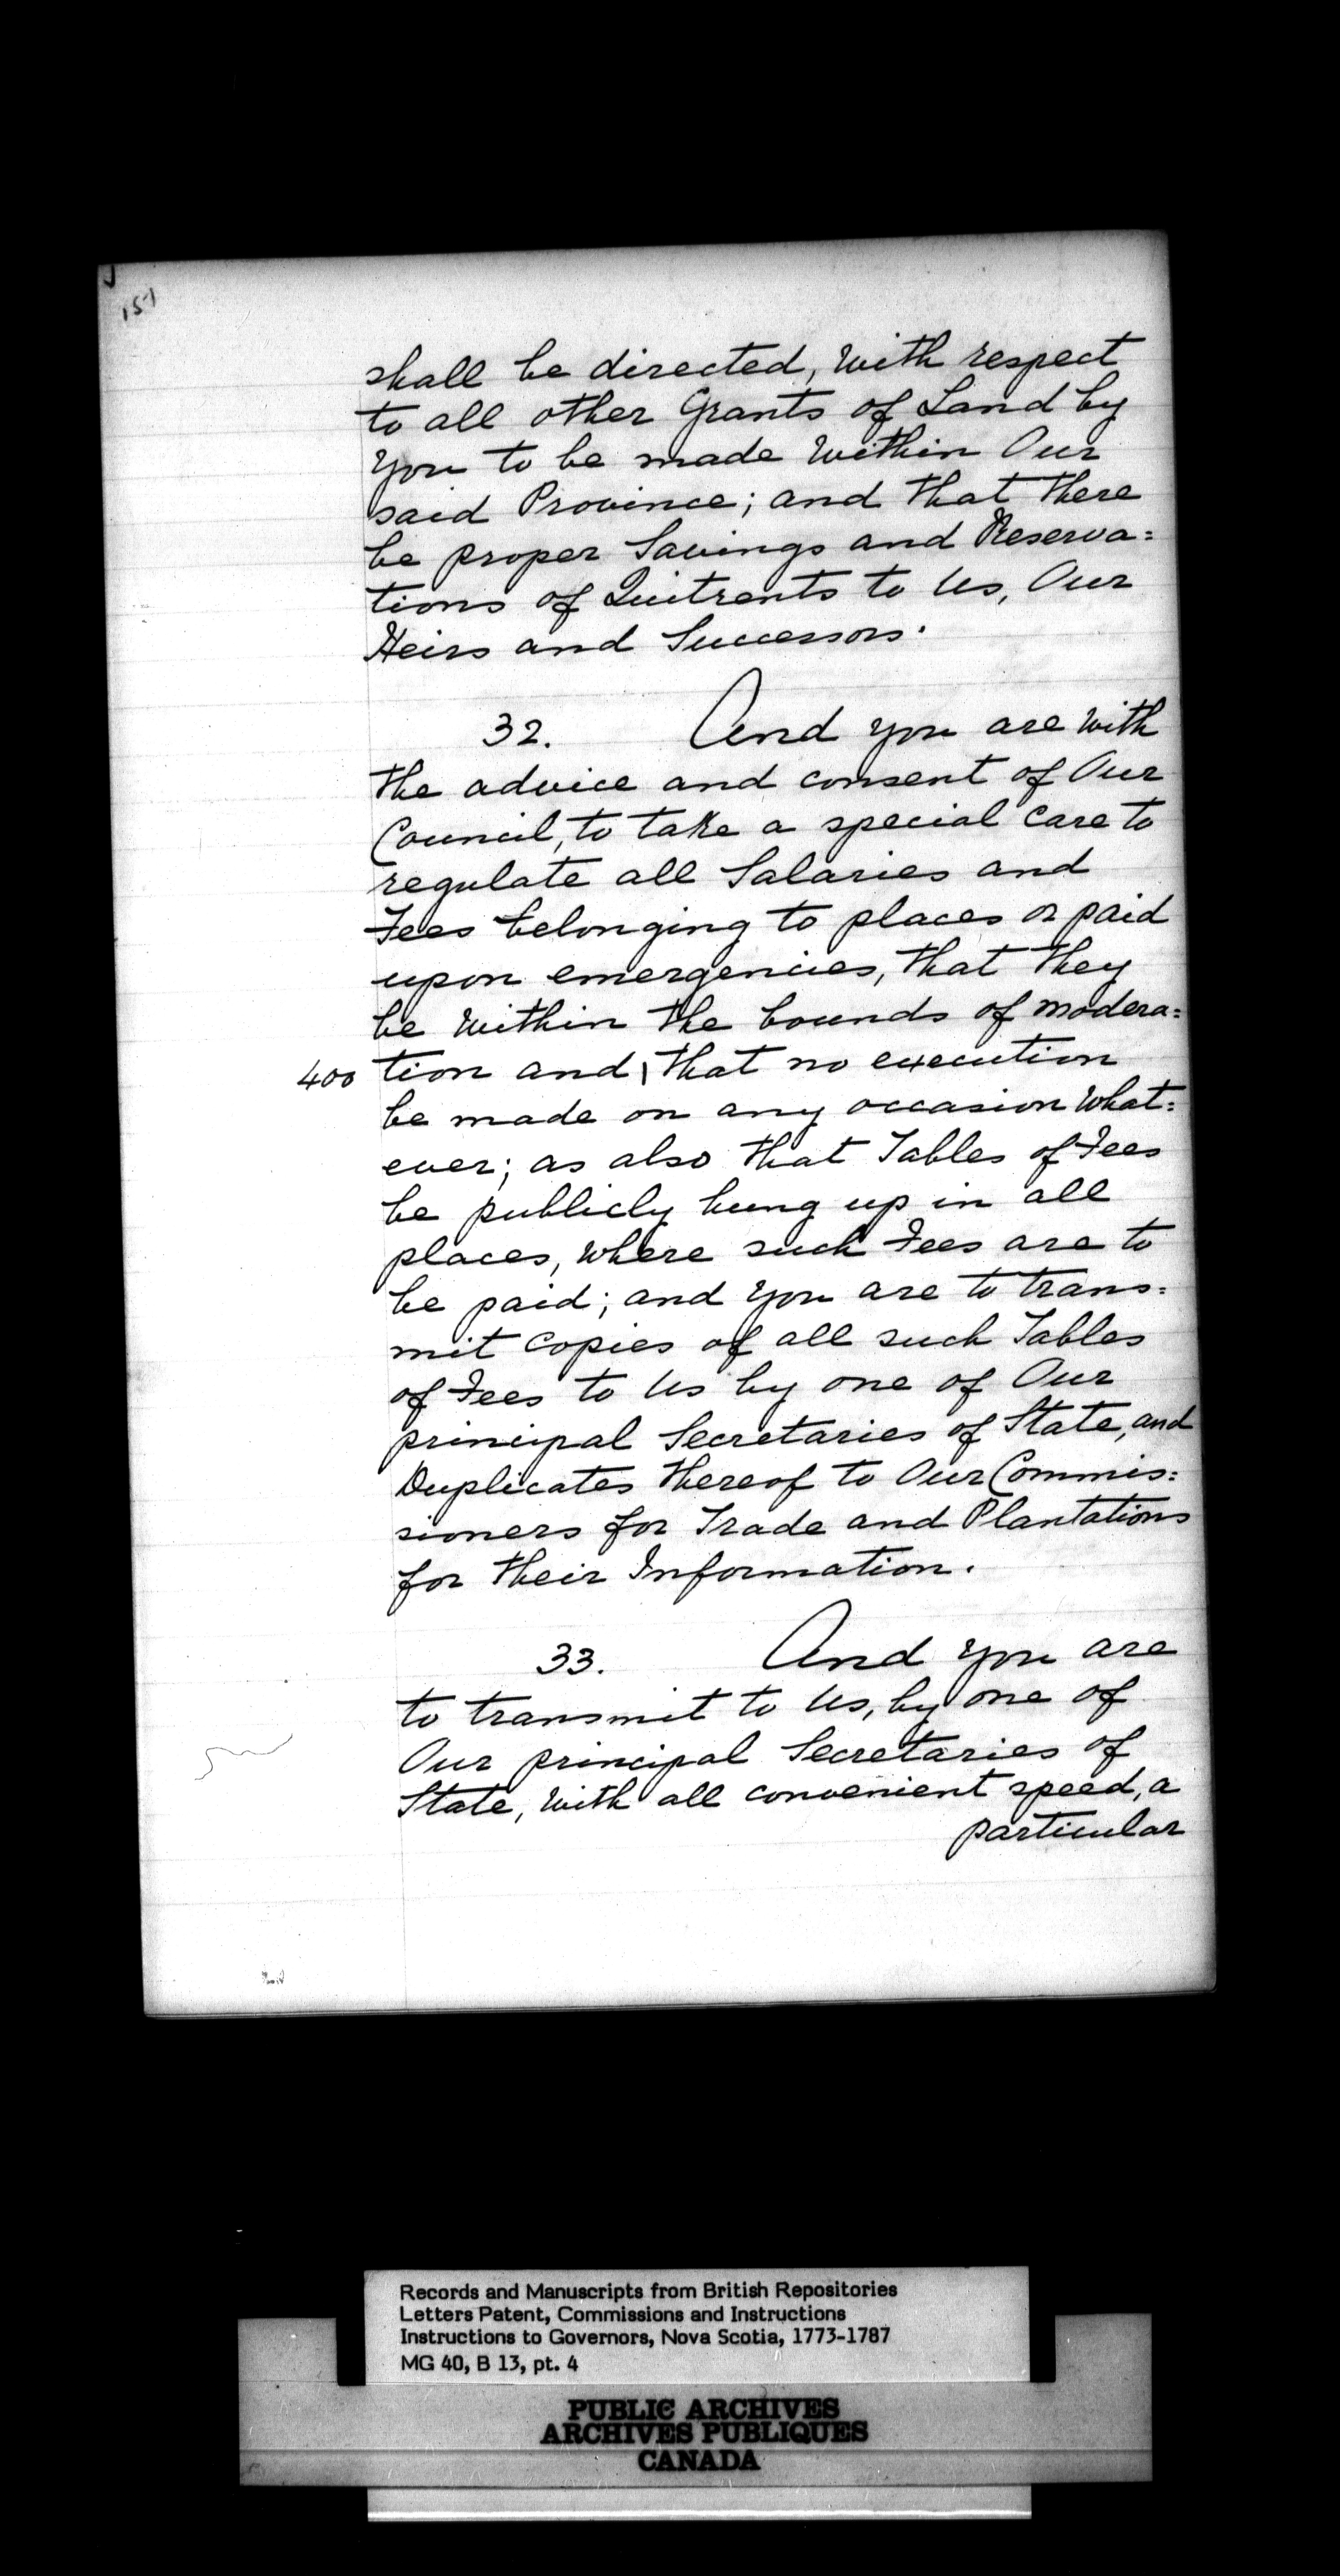 151
shall be directed, with respect
to all other Grants of Land by
you to be made within Our
said Province; and that there
be proper Savings and Reserva=
tions of Quitrents to Us, Our
Heirs and Successors.
32. And you are with
the advice and consent of Our
Council, to take a special care to
regulate all Salaries and
Fees belonging to places or paid
upon emergencies, that they
be within the bounds of modera=
400 tion and \ that no execution
be made on any occasion what=
ever; as also that Tables of Fees
be publicly hung up in all
places, where such Fees are to
be paid; and you are to trans=
mit copies of all such Tables
of Fees to Us by one of Our
principal Secretaries of State, and
Duplicates thereof to Our Commis=
sioners for Trade and Plantations
for their Information.
33. And you are
to transmit to Us, by one of
Our principal Secretaries of
State, with all convenient speed, a
particular
Records and Manuscripts from British Repositories
Letters Patent, Commissions and Instructions
Instructions to Governors, Nova Scotia, 1773-1787
MG 40, B 13, pt. 4
PUBLIC ARCHIVES
ARCHIVES PUBLIQUES
CANADA